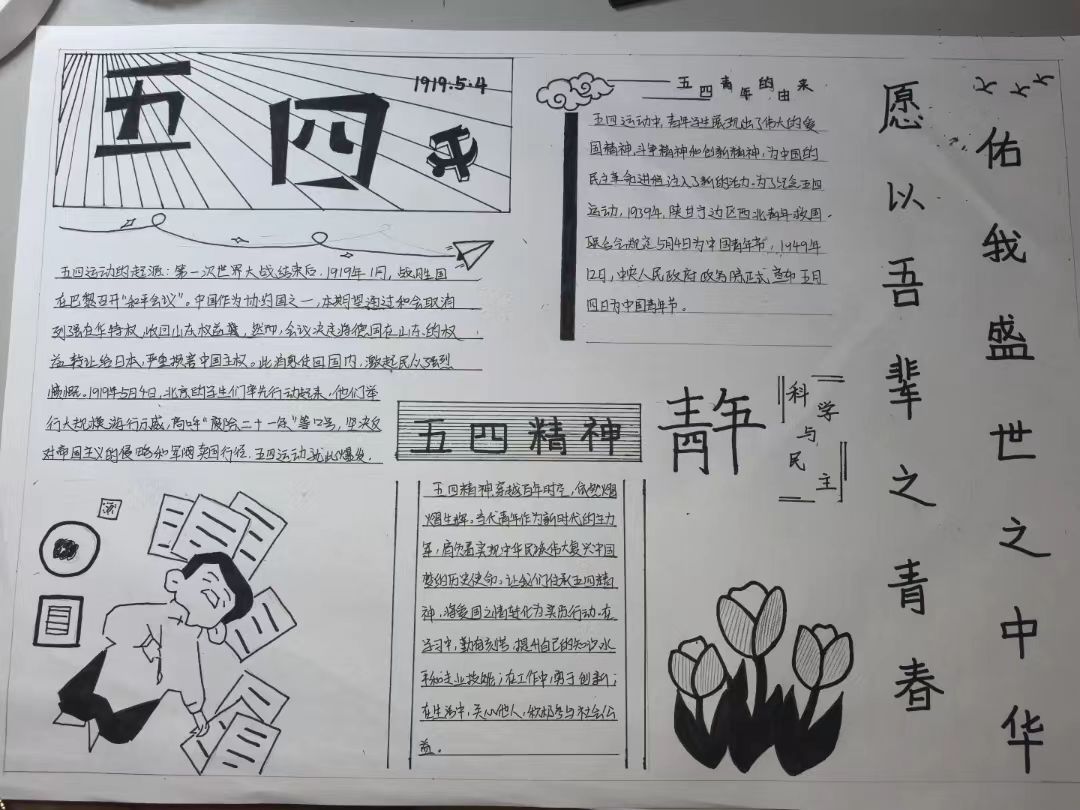 五四
1919.5.4
五四运动的起源：第一次世界大战结束后，1919年1月，战胜国
在巴黎召开“和平会议”。中国作为协约国之一，本期望通过和会取消
列强在华特权，收回山东权益，然而，会议决定将德国在山东的权
益转让给日本，严重损害中国主权。此消息传回国内，激起民众强烈
愤慨。1919年5月4日，北京的学生们率先行动起来，他们举
行大规模游行示威，高呼“废除二十一条”等口号，坚决反
对帝国主义的侵略和军阀卖国行径，五四运动就此爆发。
五四青年的由来
五四运动中，青年学生展现出了伟大的爱
国精神、斗争精神和创新精神，为中国的
民主革命进程注入了新的活力。为了纪念五四
运动，1939年，陕甘宁边区西北青年救国
联合会规定5月4日为中国青年节，1949年
12月，中央人民政府政务院正式宣布五月
四日为中国青年节。
五四精神
五四精神穿越百年时空，依然熠
熠生辉。当代青年作为新时代的生力
军，肩负着实现中华民族伟大复兴中国
梦的历史使命。让我们传承五四精
神，将爱国之情转化为实际行动。在
学习中，勤奋刻苦，提升自己的知识水
平和专业技能；在工作中，勇于创新；
在生活中，关心他人，积极参与社会公
益。
青年
科学
与
民主
愿以吾辈之青春
佑我盛世之中华